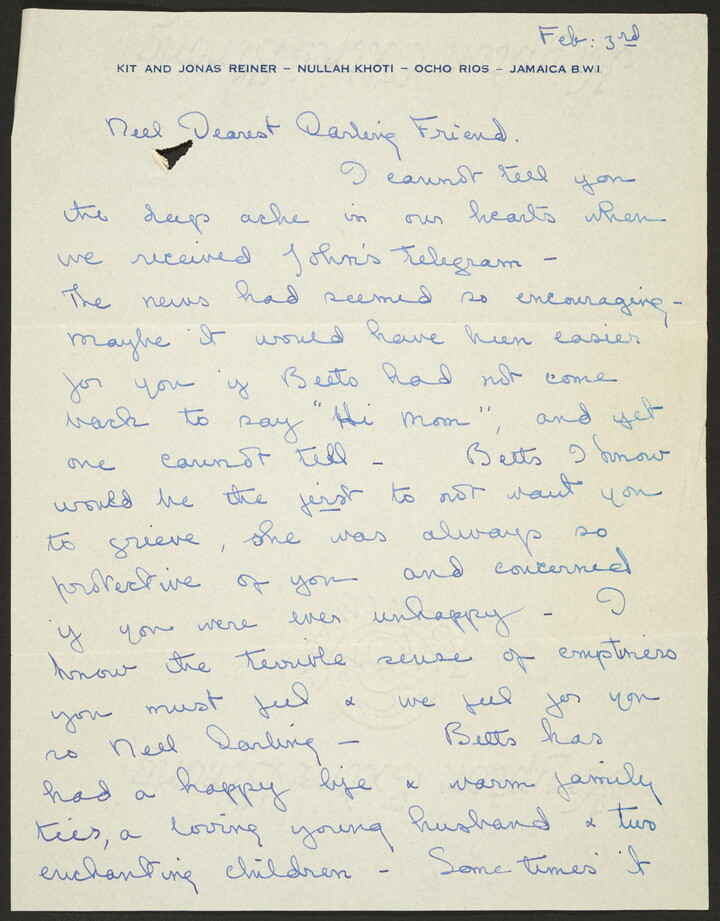 Feb: 3rd
KIT AND JONAS REINER – NULLAH KHOTI – OCHO RIOS – JAMAICA B.W.I.
Nell Dearest Darling Friend.
I cannot tell you
the deep ache in our hearts when
we received John's telegram –
The news had seemed so encouraging –
maybe it would have been easier
for you if Betts had not come
back to say "Hi Mom", and yet
one cannot tell – Betts I know
would be the first to not want you
to grieve, she was always so
protective of you and concerned
if you were ever unhappy – I
know the terrible sense of emptiness
you must feel & we feel for you
so Nell Darling – Betts has
had a happy life & warm family
ties, a loving young husband & two
enchanting children – Sometimes it